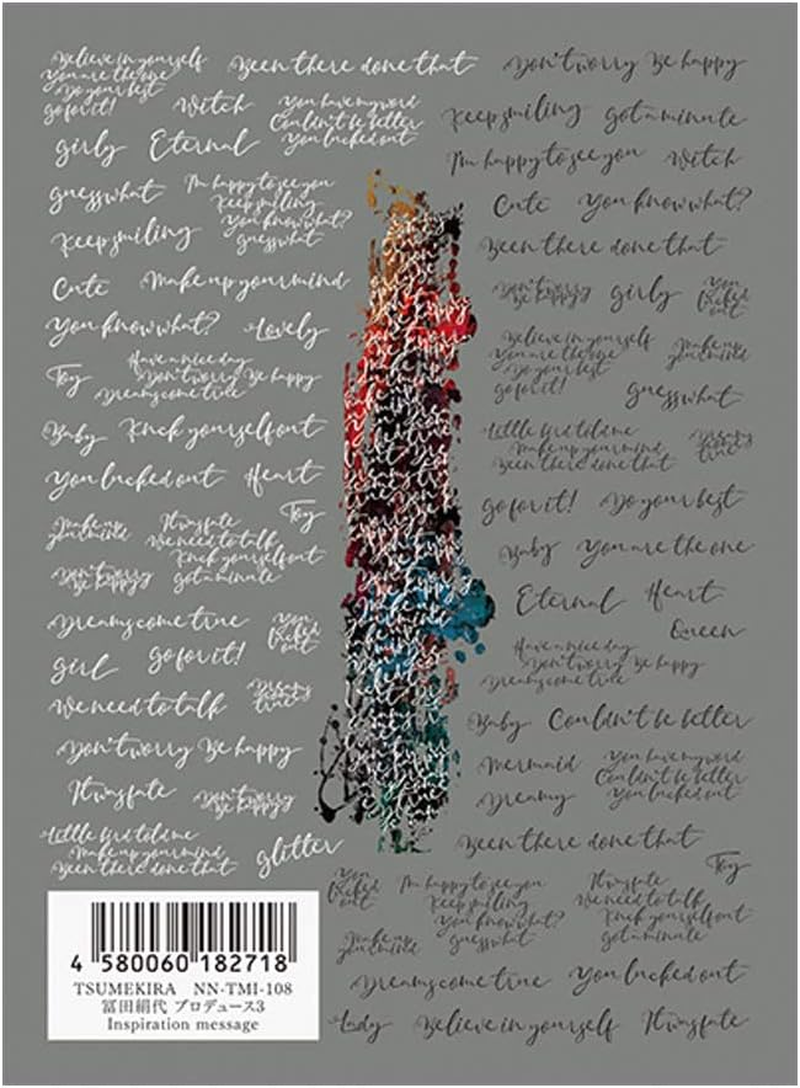 Believe in yourself
You are the one
Do your best
go for it!
Been there done that
Witch
You have my word
Couldn't be better
You lucked out
girly Eternal
guess what
I'm happy to see you
Keep smiling
You know what?
guess what
Keep smiling
Cute Make up your mind
You know what? Lovely
Toy
Have a nice day
Don't worry Be happy
Dreams come true
Baby Knck yourself out
You lucked out Heart
Toy
Make up
your mind
It was fate
We need to talk
Knck yourself out
got a minute
Don't worry
Be happy
Dreams come true
You
lucked
out
girl go for it!
We need to talk
Dreams
come
true
Don't worry Be happy
It was fate
Don't worry
Be happy
Little bird told me
Make up your mind
Been there done that
glitter
Don't worry Be happy
Keep smiling got a minute
I'm happy to see you Witch
Cute You know what?
Been there done that
Don't worry
Be happy
girly
You
lucked
out
Believe in yourself
You are the one
Do your best
go for it!
Make up
your mind
guess what
Little bird told me
Make up your mind
Been there done that
Dreams
come
true
go for it! Do your best
Baby You are the one
Eternal Heart
Queen
Have a nice day
Don't worry Be happy
Dreams come true
Baby Couldn't be better
Mermaid
Dreamy
You have my word
Couldn't be better
You lucked out
Been there done that
Toy
You
lucked
out
I'm happy to see you
Keep smiling
You know what?
guess what
It was fate
We need to talk
Knck yourself out
got a minute
Make up
your mind
Dreams come true You lucked out
Lady Believe in yourself It was fate
4 580060 182718
TSUMEKIRA NN-TMI-108
冨田絹代 プロデュース3
Inspiration message